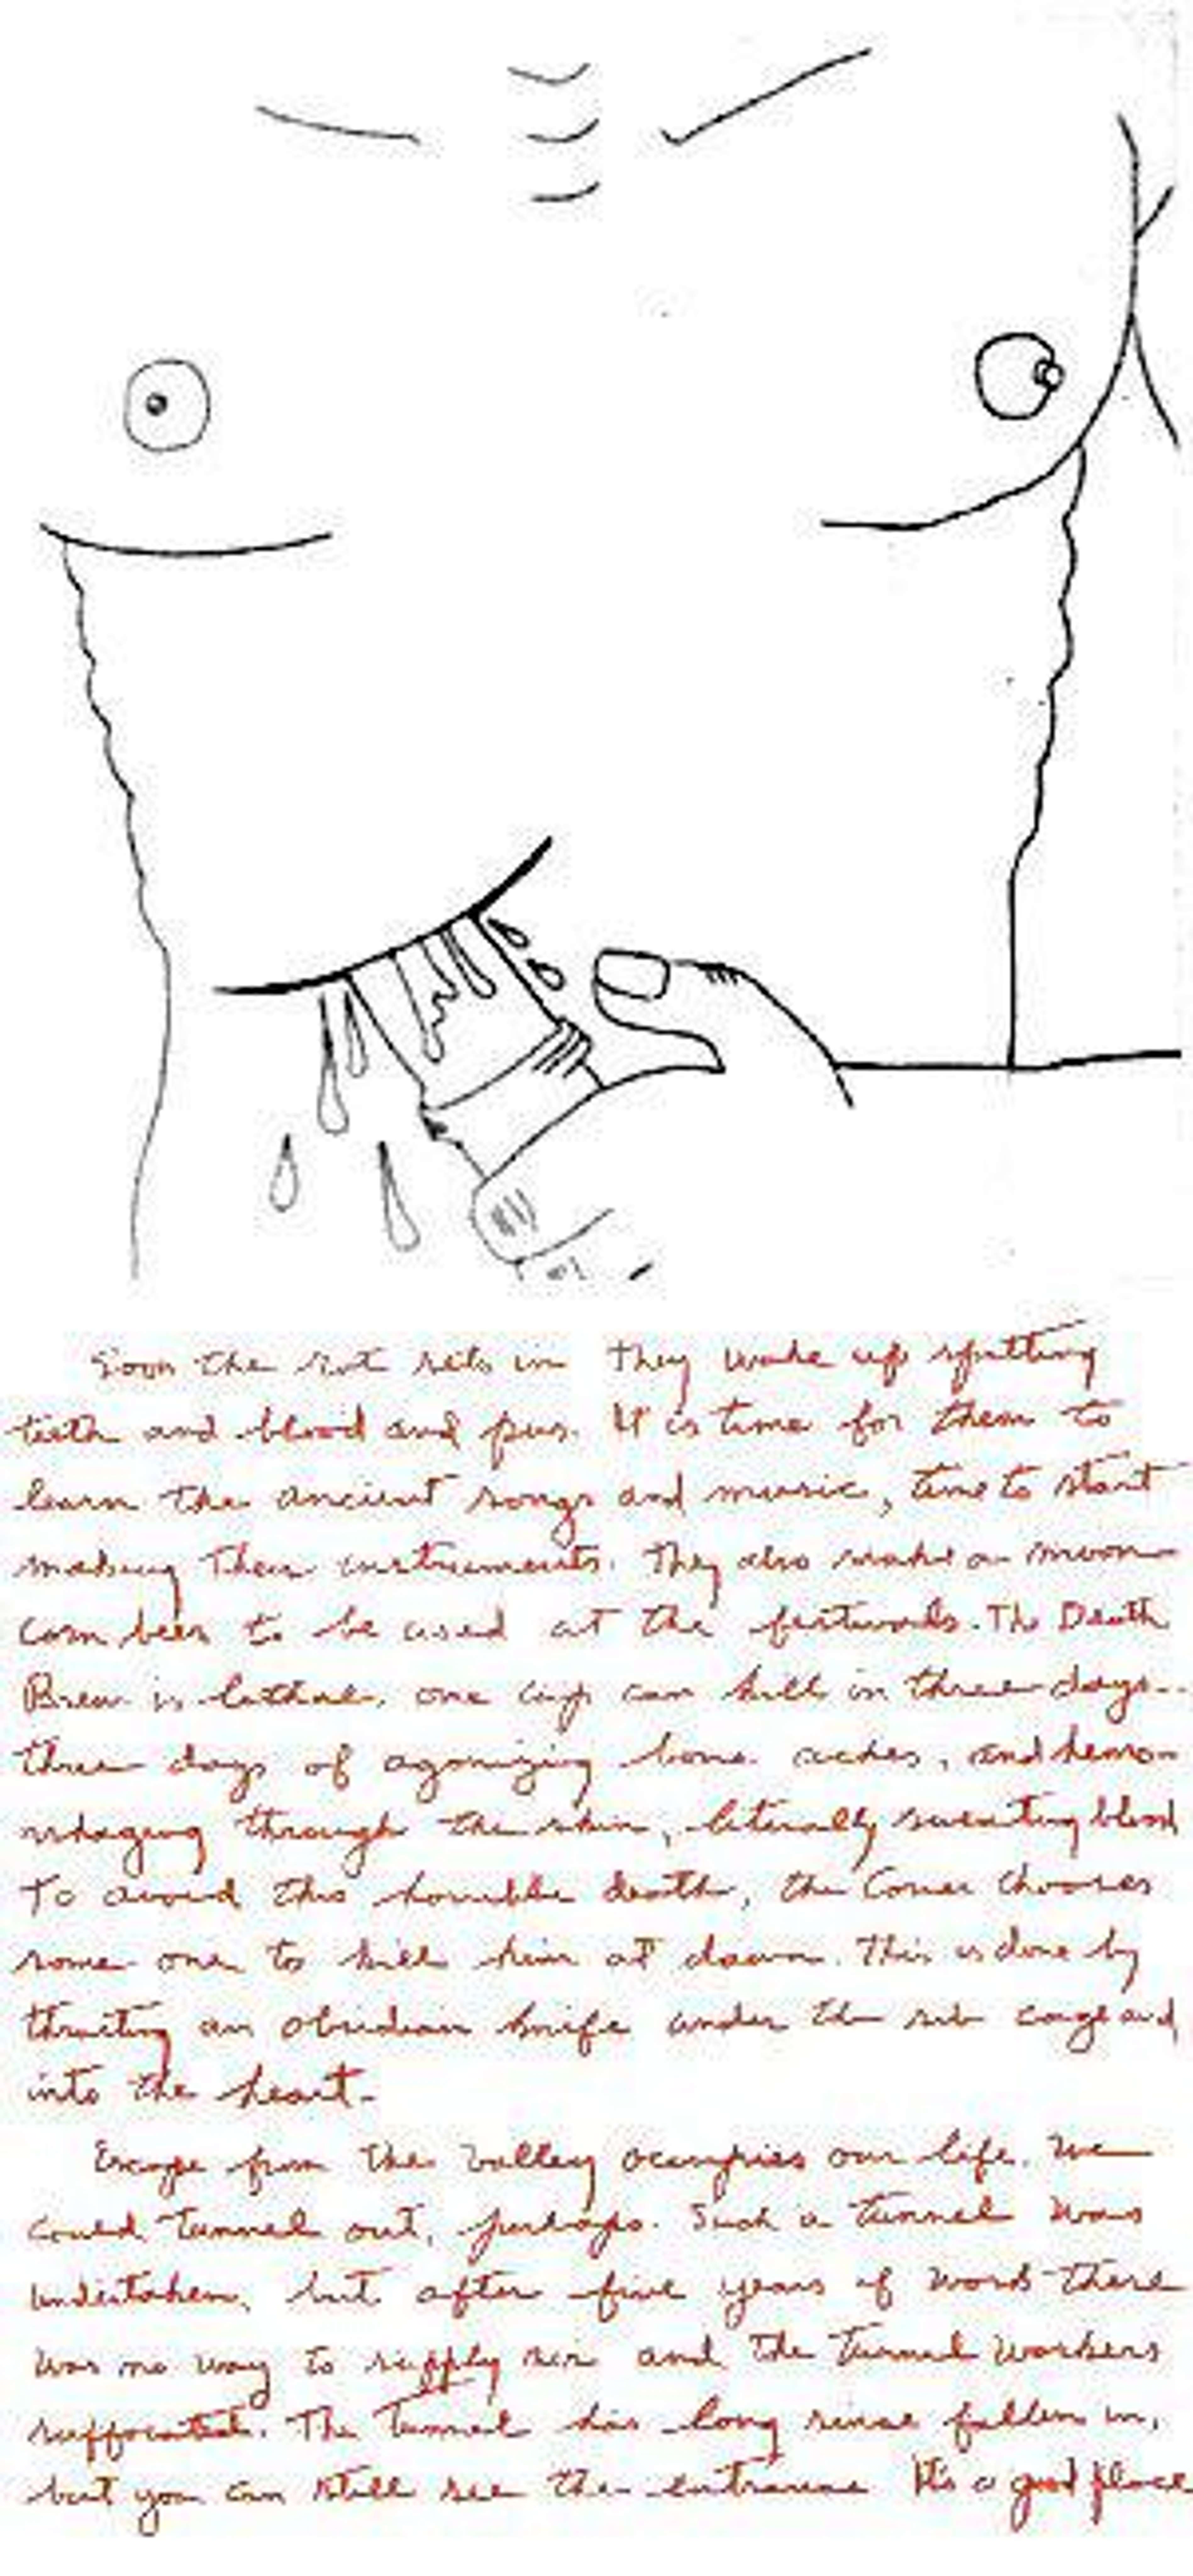 Soon the rot sets in They wake up spitting
teeth and blood and pus. It is time for them to
learn the ancient songs and music, time to start
making their instruments. They also make a moon
corn beer to be used at the festivals. The Death
Brew is lethal, one cup can kill in three days--
three days of agonizing bone aches, and hemo-
rrhaging through the skin, literally sweating blood
To avoid this horrible death, the Comer chooses
some one to kill him at dawn. This is done by
thrusting an obsidian knife under the rib cage and
into the heart.
Escape from the Valley occupies our life. We
could tunnel out, perhaps. Such a tunnel was
undertaken, but after five years of work there
was no way to supply air and the tunnel workers
suffocated. The Tunnel has long since fallen in,
but you can still see the entrance It's a good place